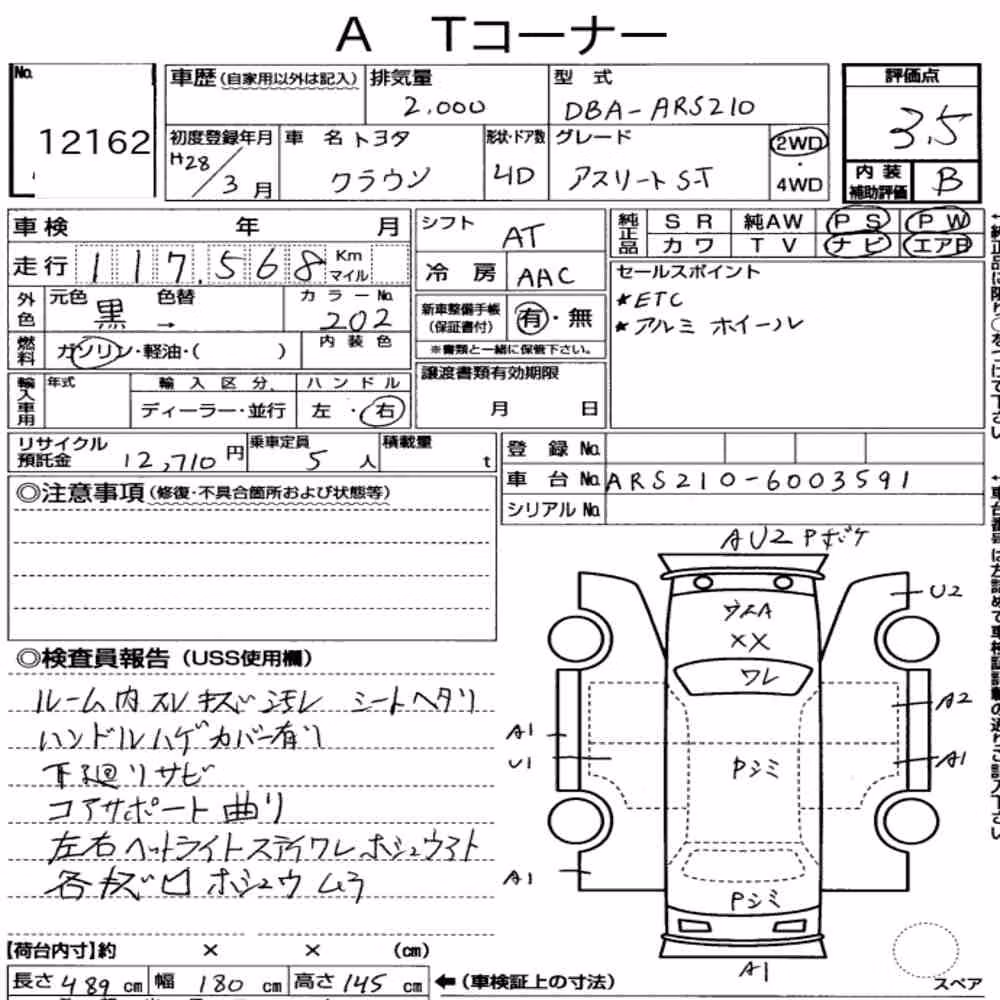 A Tコーナー
No.
12162
車歴(自家用以外は記入)
排気量
2,000
型式
DBA-ARS210
評価点
3.5
初度登録年月
H28/3月
車名 トヨタ
クラウン
形状・ドア数
4D
グレード
アスリートS-T
2WD
・
4WD
内装
補助評価
B
車検 年 月
走行 117,568 Km マイル
外色
元色 黒 色替 →
カラーNo.
202
燃料
ガソリン・軽油・( )
内装色
輸入車用
年式
輸入区分
ディーラー・並行
ハンドル
左・右
シフト
AT
冷房 AAC
新車整備手帳
(保証書付)
有・無
※書類と一緒に保管下さい。
譲渡書類有効期限
月 日
純正品
SR 純AW PS PW
カワ TV ナビ エアB
セールスポイント
★ETC
★アルミホイール
リサイクル
預託金 12,710円
乗車定員
5人
積載量
t
登録No.
車台No. ARS210-6003591
シリアルNo.
◎注意事項(修復・不具合箇所および状態等)
◎検査員報告(USS使用欄)
ルーム内スレキズ汚レ シートヘタリ
ハンドルハゲカバー有リ
下廻リサビ
コアサポート曲リ
左右ヘットライトステイワレホシュウスト
各キズ凹ホシュウムラ
【荷台内寸】約 × × (cm)
長さ489cm 幅180cm 高さ145cm
←(車検証上の寸法)
AU2 Pボケ
U2
XX
ワレ
A1
U1
A2
A1
Pシミ
A1
Pシミ
A1
スペア